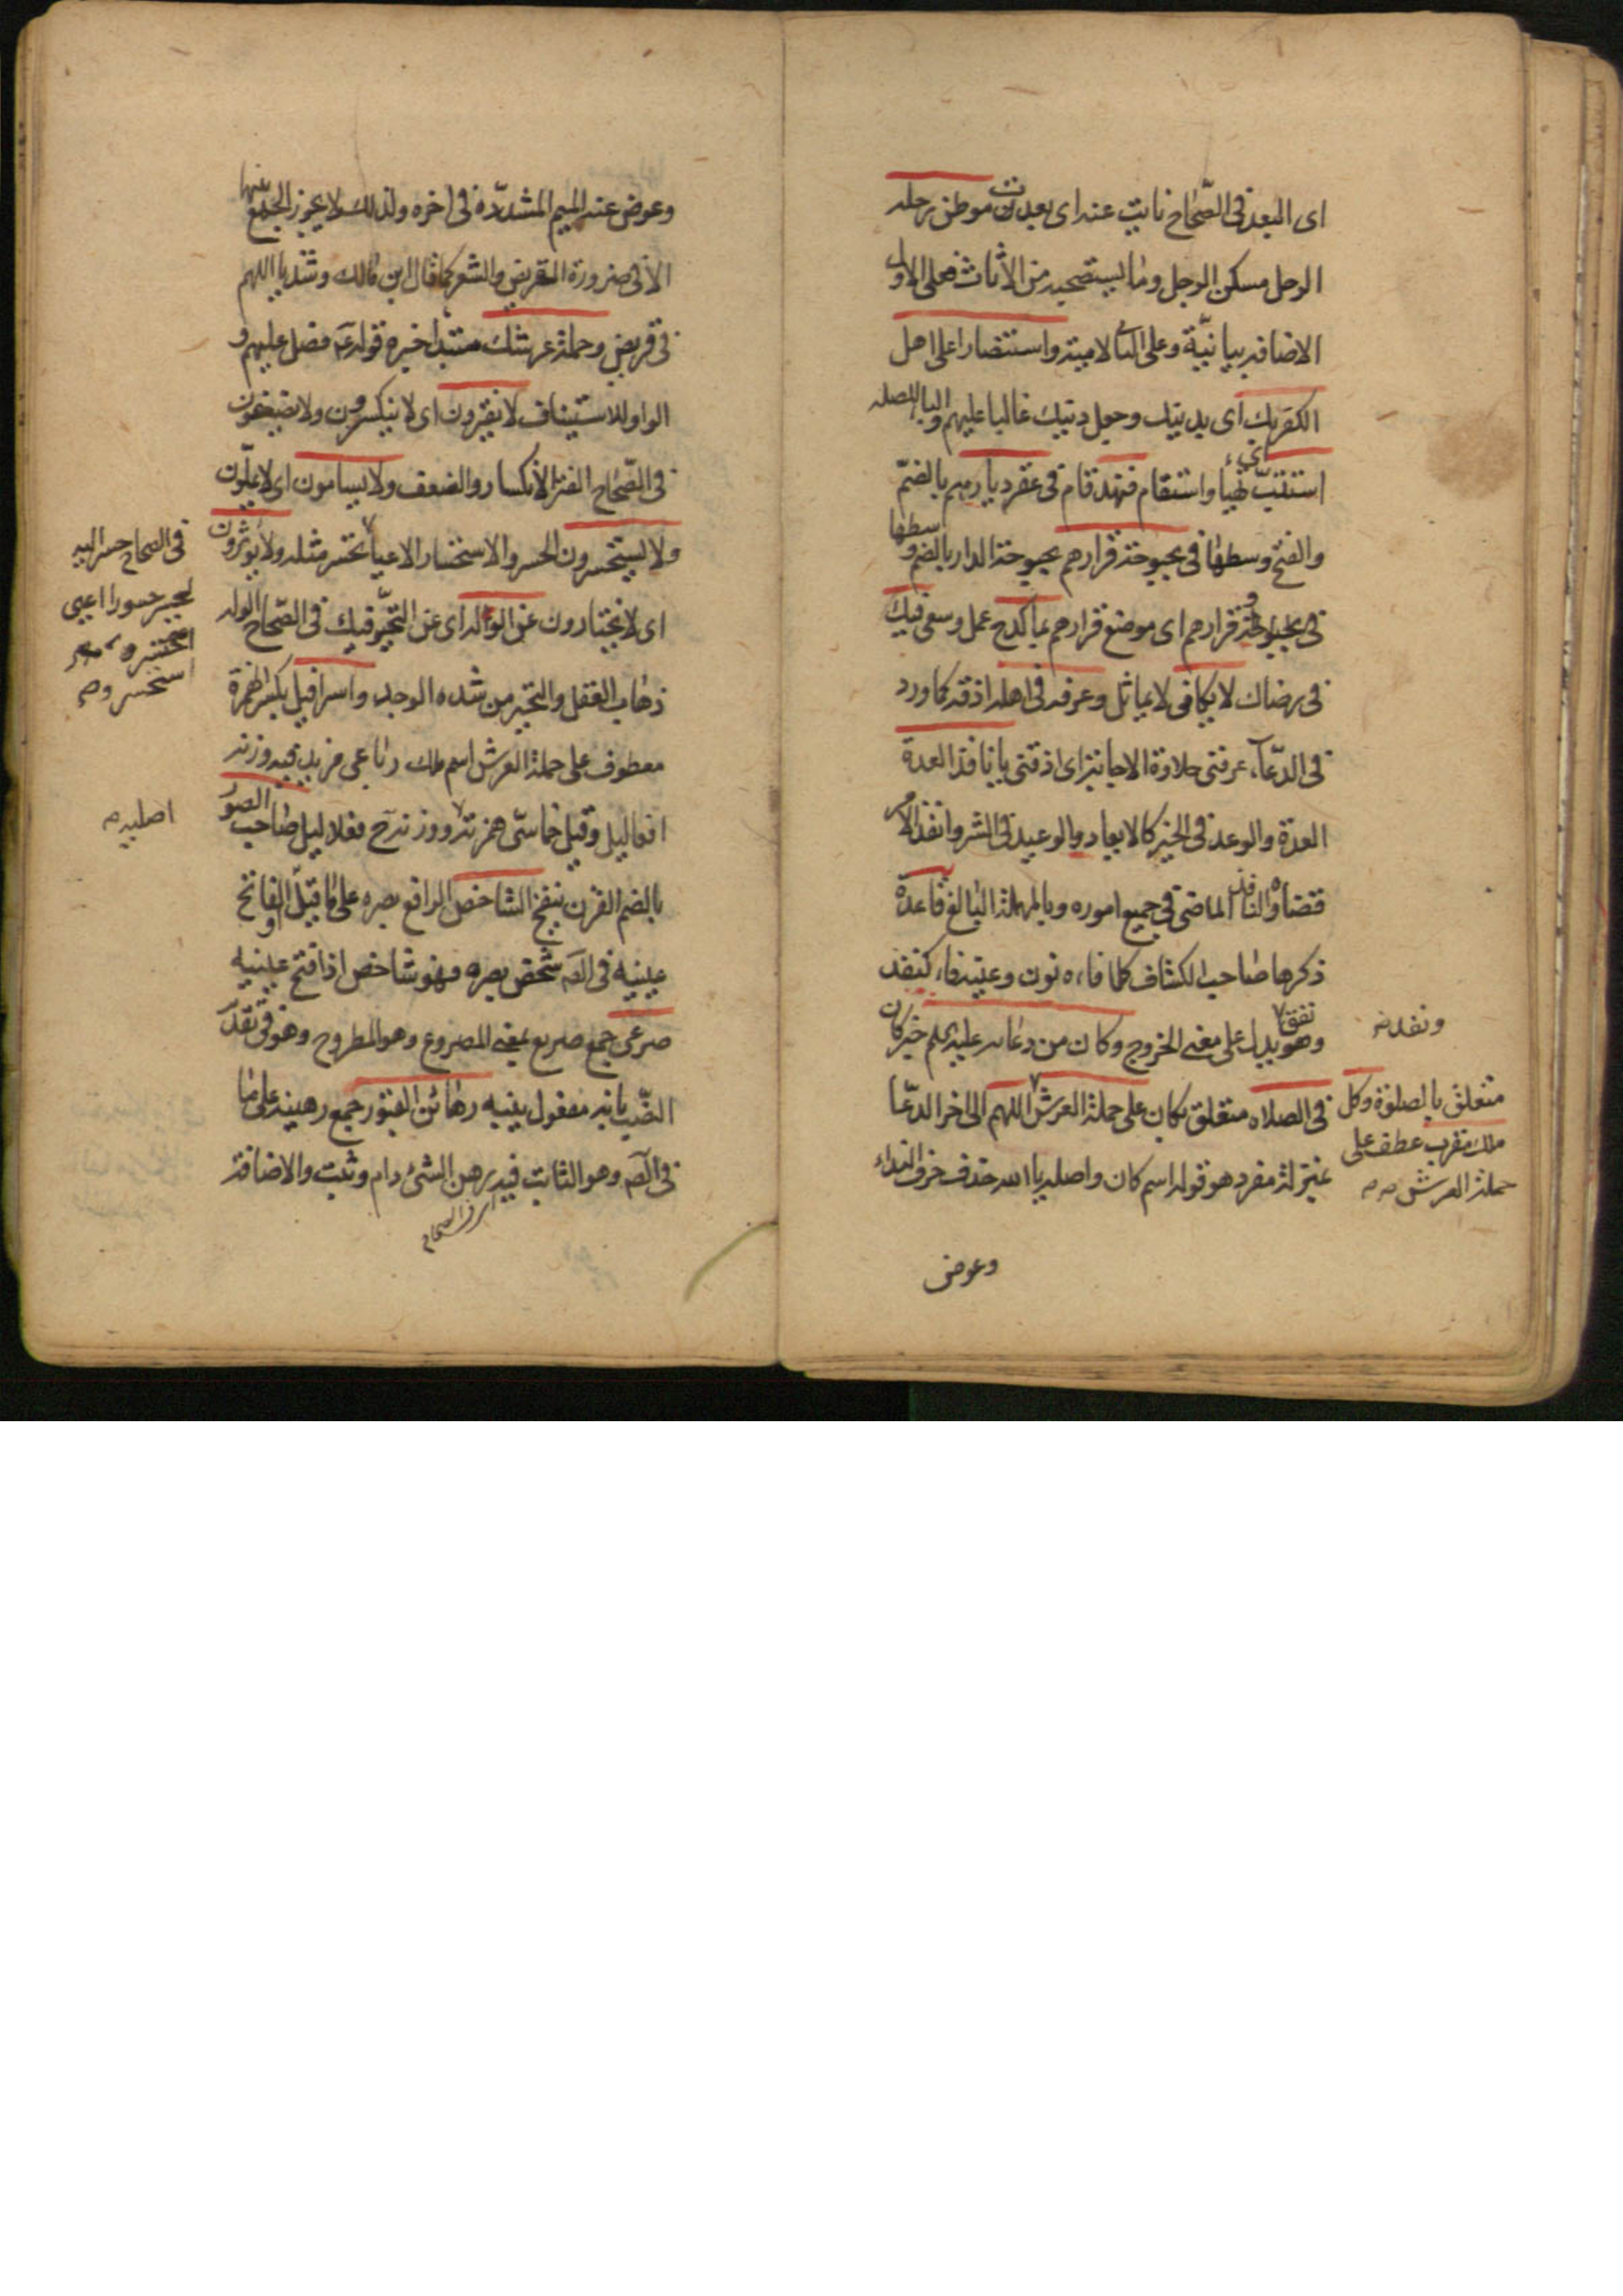 اى البعد فى الصّحاح نايت عنه اى بعدت موطن رحله
الرحل مسكن الرجل وما يستصحبه من الأثاث فعلى الاول
الاضافه بيانيّة وعلى الثانى لاميته واستنصارا على اهل
الكفر بك اى بدينك وجعل دينك غالبا عليهم والبا للصله
استتبّ تهيأ واستقام فنهد قام فى عقر ديارهم بالضمّ
والفتح وسطها فى بحبوحة قرارهم بحبوحة الدار بالضم وسطها
فى بحبوحة قرارهم اى موضع قرارهم بما كدح عمل وسعى فيك
فى رضاك لا يكافى لا يماثل وعرفه فى اهله اذقه كما ورد
فى الدّعاء عرفنى حلاوة الاجابة اى اذقنى يا نافذ العدة
العدة والوعد فى الخير كالايعاد والوعيد فى الشر وانفذ الامر
قضاه والنافذ الماضى فى جميع اموره وبالمهملة البالغ قاعدة
ذكرها صاحب الكشاف كلما فاءه نون وعينه فاء كنفد
ونفذ
نفق وهو يدل على معنى الخروج وكان من دعائه عليه السلم خبر كان
فى الصلاه متعلق بكان على حملة العرش اللهم الى اخر الدعّا
متعلق بالصلوة وكل
ملك مقرب عطف على
حملة العرش
بمنزلة مفرد هو قوله اسم كان واصله يا الله حذف حرف النداء
وعوض
وعوض عنه الميم المشدّدة فى اخره ولذلك لا يجوز الجمع بينها
الا فى ضرورة القريض والشعر كما قال ابن مالك وشذ يا اللهم
فى قريض وحملة عرشك مبتدأ خبره قوله فصل عليهم و
الواو للاستيناف لا يفترون اى لا ينكسرون ولا يضعفون
فى الصّحاح الفترة الانكسار والضعف ولا يسامون اى لا يملّون
ولا يستحسرون الحسر والاستحسار الاعيا تحسر مثله ولا يؤثرون
فى الصحاح حسر البعير
يحسر حسورا اعيى
استحسر
اى لا يختارون عن الوله اى عن التحيّر فيك فى الصّحاح الوله
ذهاب العقل والتحير من شده الوجد واسرافيل بكسر الهمزة
معطوف على حملة العرش اسم ملك رباعى مزيد فيه وزنه
افعاليل وقيل خماسىّ همزته ووزنه ح فعلاليل صاحب الصور
اصليه
بالضم القرن ينفخ الشاخص الرافع بصره على ما قيل او الفاتح
عينيه فى الصحاح شخص بصره فهو شاخص اذا فتح عينيه
صرعى جمع صريع بمعنى المصروع وهو المطروح وهو فى
الضّيا بانه مفعول ينبه رهائن القبور جمع رهينه على ما
فى الصحاح وهو الثابت فيه رهن الشئ دام وثبت والاضافة